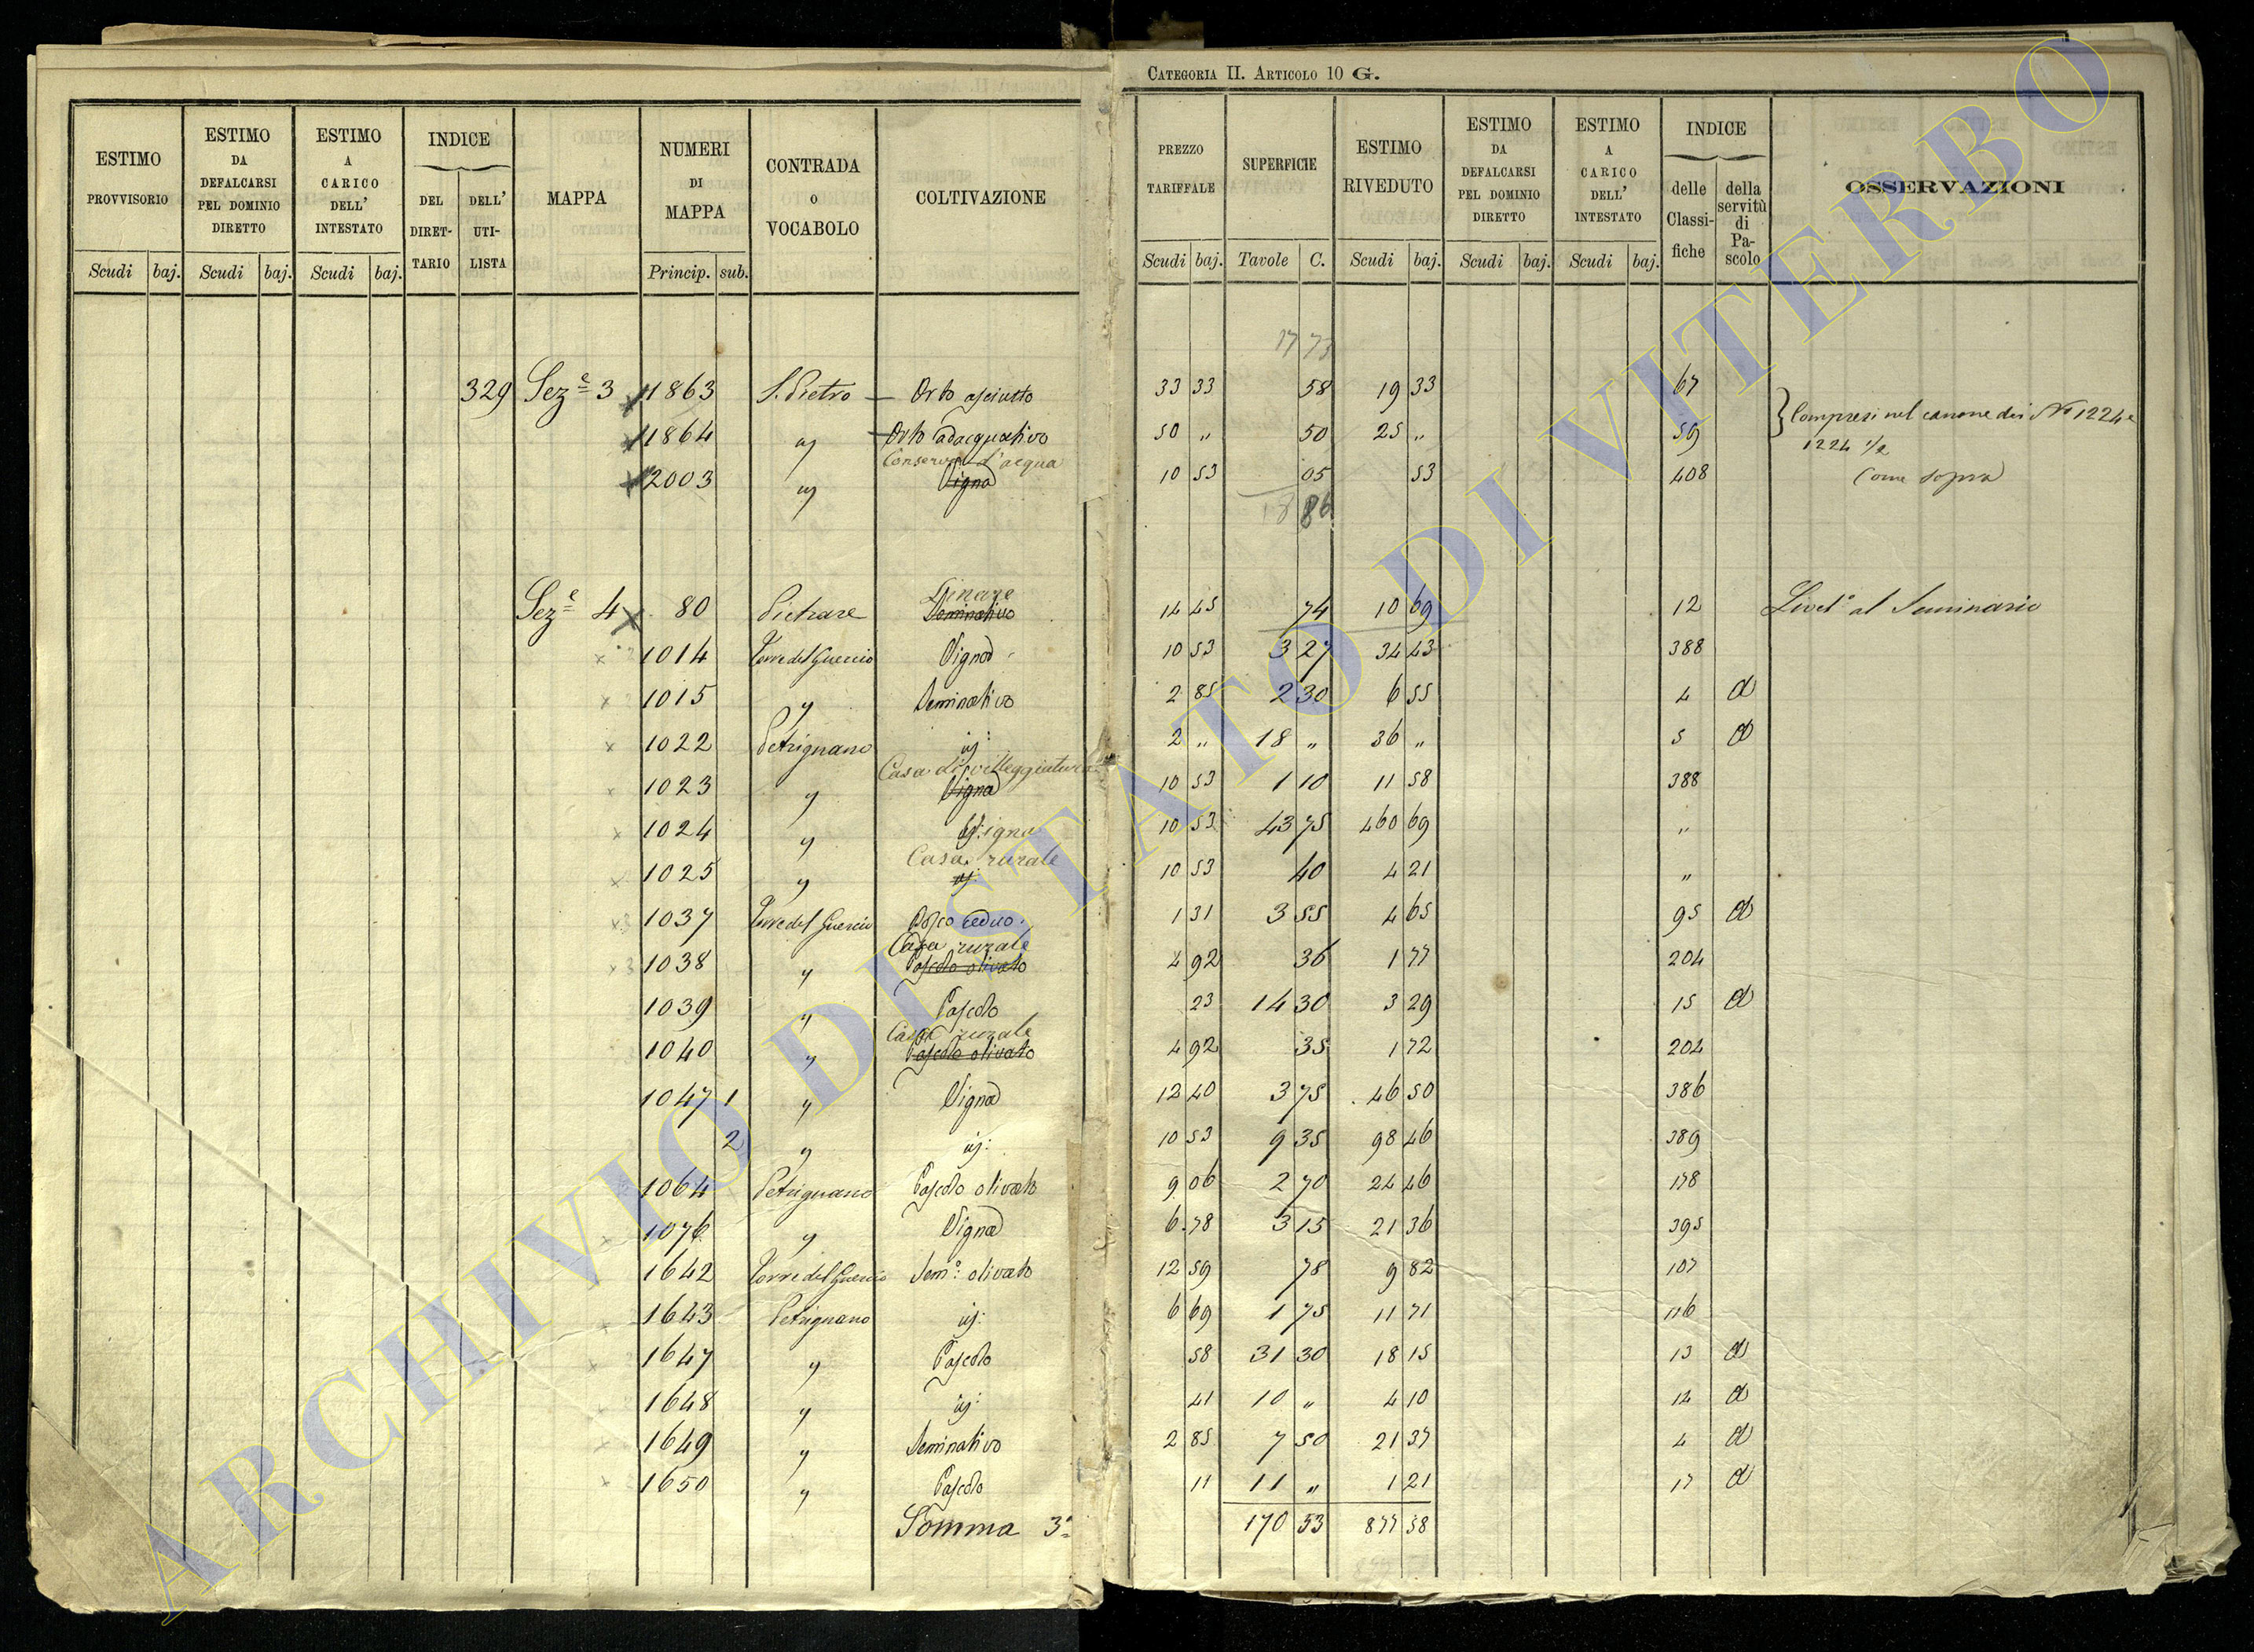 CATEGORIA II. ARTICOLO 10 G.
ESTIMO PROVVISORIO
ESTIMO DA DEFALCARSI PEL DOMINIO DIRETTO
ESTIMO A CARICO DELL' INTESTATO
INDICE
DEL DIRET-TARIO
DELL' UTI-LISTA
MAPPA
NUMERI DI MAPPA
CONTRADA O VOCABOLO
COLTIVAZIONE
PREZZO TARIFFALE
SUPERFICIE
ESTIMO RIVEDUTO
ESTIMO DA DEFALCARSI PEL DOMINIO DIRETTO
ESTIMO A CARICO DELL' INTESTATO
INDICE
delle Classi-fiche
della servitù di Pa-scolo
OSSERVAZIONI
Scudi baj. Scudi baj. Scudi baj. Princip. sub. Scudi baj. Tavole C. Scudi baj. Scudi baj. Scudi baj.
17 73
329 Sez.e 3 1863 S. Pietro Orto asciutto 33 33 58 19 33 67
Compresi nel canone dei Ni 1224 e
1864 " Orto adacquativo 50 " 50 25 " 59
1224 1/2
Conserva d'acqua
2003 " Vigna 10 53 05 53 408 Come sopra
18 86
Linare
Sez.e 4 80 Pietrare Seminativo 14 45 74 10 69 12 Livel.o al Seminario
1014 Torre del Guercio Vigna 10 53 3 27 34 43 388
1015 " Seminativo 2 85 2 30 6 55 4 a
1022 Petrignano id: 2 " 18 " 36 " 5 a
Casa di villeggiatura
1023 " Vigna 10 53 1 10 11 58 388
1024 " Vigna 10 53 43 75 460 69 "
Casa rurale
1025 " id: 10 53 40 4 21 "
1037 Torre del Guercio Bosco ceduo 1 31 3 55 4 65 95 a
Casa rurale
1038 " Pascolo olivato 4 92 36 1 77 204
1039 " Pascolo 23 14 30 3 29 15 a
Casa rurale
1040 " Pascolo olivato 4 92 35 1 72 204
1047 1 " Vigna 12 40 3 75 46 50 386
2 " id: 10 53 9 35 98 46 389
1064 Petrignano Pascolo olivato 9 06 2 70 24 46 178
1076 " Vigna 6 78 3 15 21 36 395
1642 Torre del Guercio Sem.o: olivato 12 59 78 9 82 107
1643 Petrignano id: 6 69 1 75 11 71 116
1647 " Pascolo 58 31 30 18 15 13 a
1648 " id: 41 10 " 4 10 14 a
1649 " Seminativo 2 85 7 50 21 37 4 a
1650 " Pascolo 11 11 " 1 21 17 a
Somma 3a 170 53 877 58
ARCHIVIO DI STATO DI VITERBO